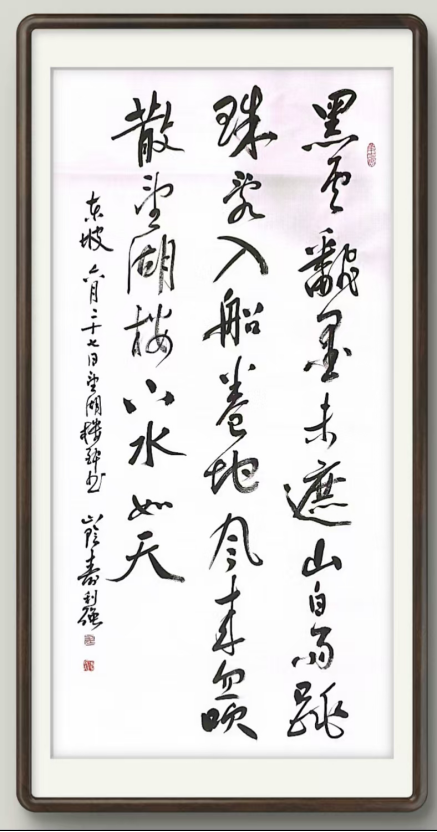 黑雲飜墨未遮山白雨跳
珠亂入船卷地風来忽吹
散望湖楼下水如天
东坡 六月二十七日望湖楼醉书 山阴寿利强